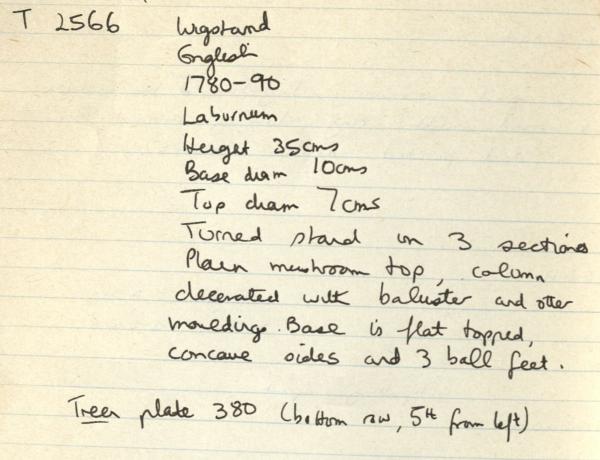 T 2566 Wigstand
English
1780-90
Laburnum
Height 35cms
Base diam 10cms
Top diam 7cms
Turned stand in 3 sections
Plain mushroom top, column
decorated with baluster and other
mouldings. Base is flat topped,
concave sides and 3 ball feet.
Treen plate 380 (bottom row, 5th from left)